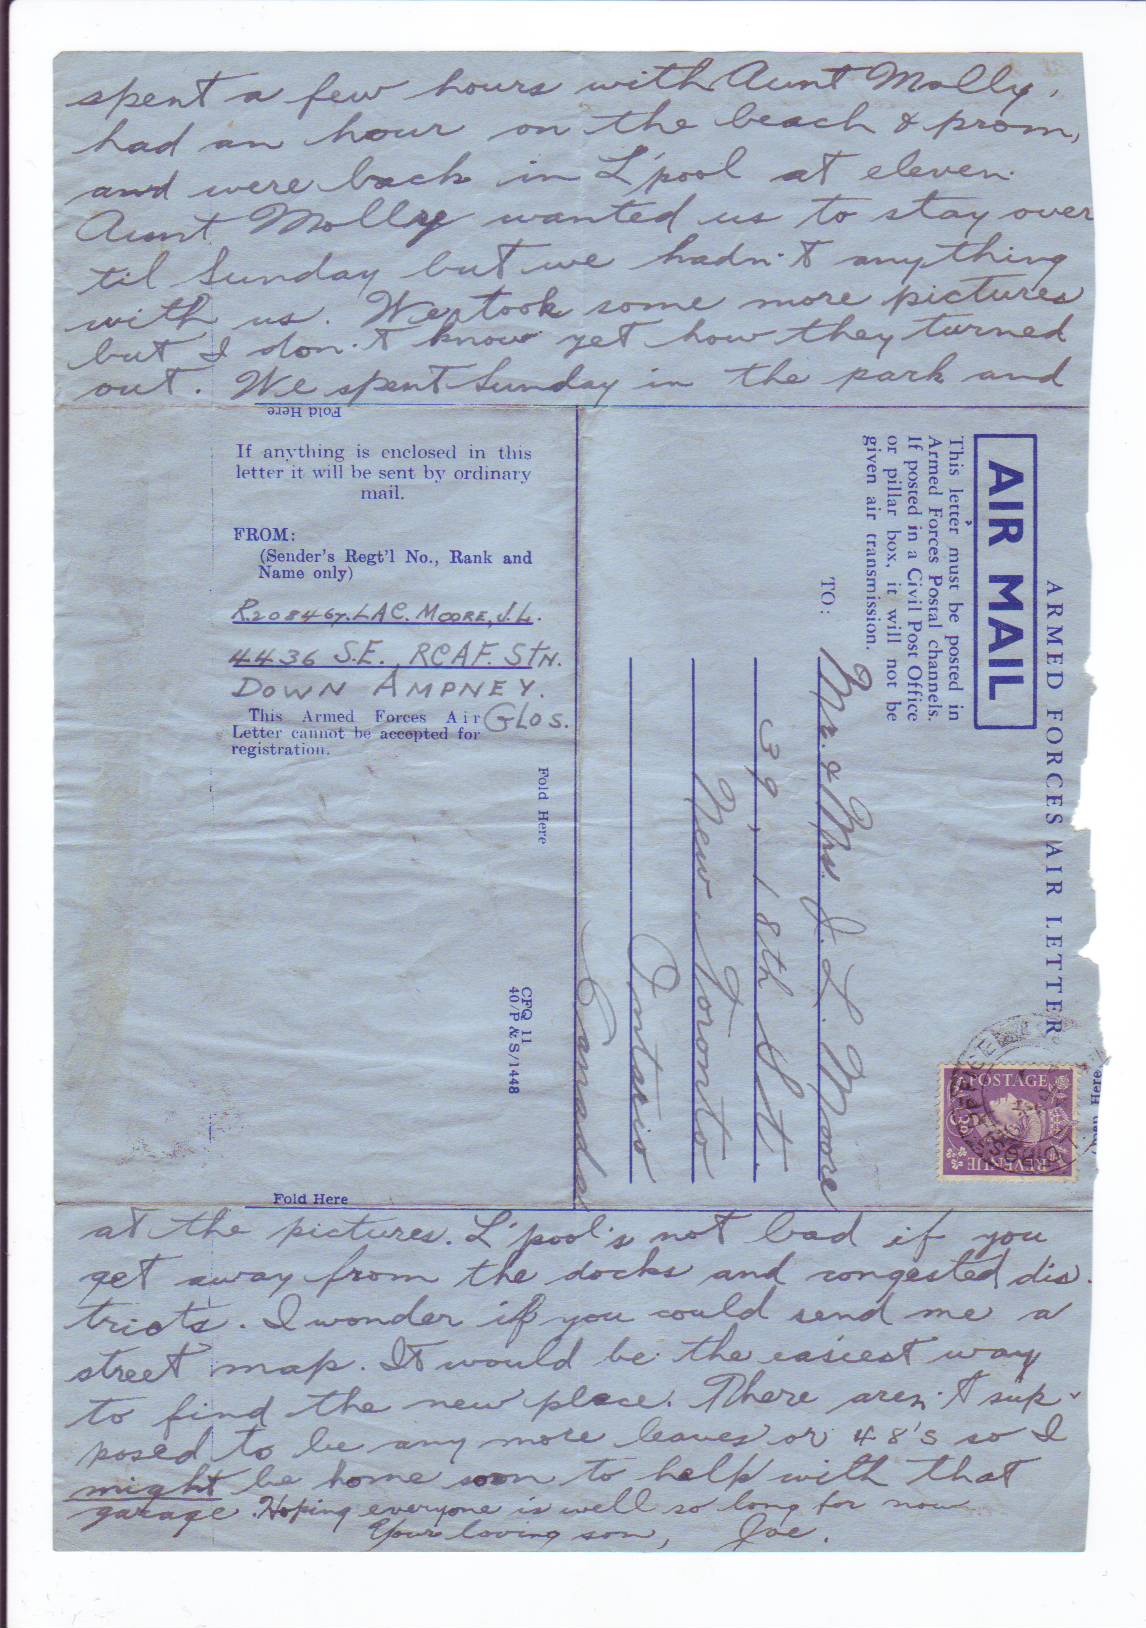 spent a few hours with Aunt Molly,
had an hour on the beach & prom,
and were back in L'pool at eleven.
Aunt Molly wanted us to stay over
til Sunday but we hadn't anything
with us. We took some more pictures
but I don't know yet how they turned
out. We spent Sunday in the park and
Fold Here
If anything is enclosed in this
letter it will be sent by ordinary
mail.
FROM:
(Sender's Regt'l No., Rank and
Name only)
R.208467. LAC. MOORE, J.L.
4436 S.E. RCAF. STN.
DOWN AMPNEY.
GLOS.
This Armed Forces Air
Letter cannot be accepted for
registration.
Fold Here
CFQ 11
40/P & S/1448
Fold Here
ARMED FORCES AIR LETTER
AIR MAIL
This letter must be posted in
Armed Forces Postal channels.
If posted in a Civil Post Office
or pillar box, it will not be
given air transmission.
TO:
Mr. & Mrs. J. L. Moore
39, 18th St.
New Toronto
Ontario
Canada
POSTAGE
REVENUE
Here
at the pictures. L'pool's not bad if you
get away from the docks and congested dis-
tricts. I wonder if you could send me a
street map. It would be the easiest way
to find the new place. There aren't sup-
posed to be any more leaves or 48's so I
might be home soon to help with that
garage. Hoping everyone is well so long for now
Your loving son, Joe.